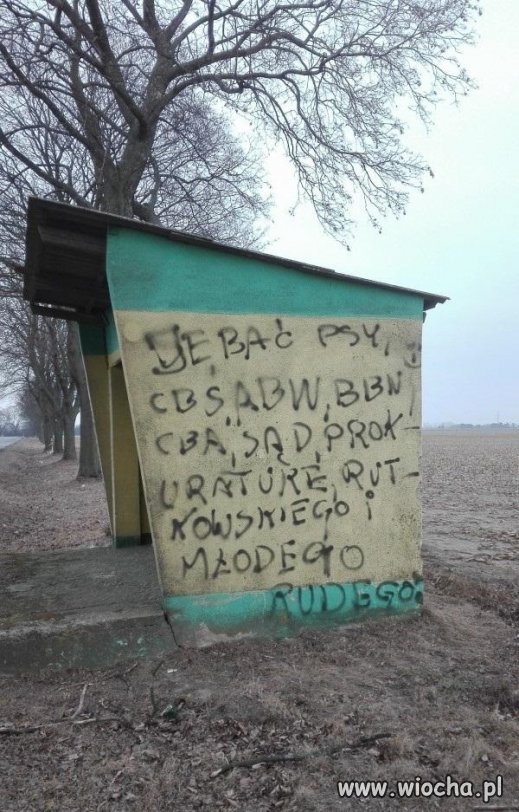 JEBAĆ PSY,
CBŚ, ABW, BBN,
CBA, SĄD, PROK-
URATURE, RUT-
KOWSKIEGO i
MŁODEGO
RUDEGO
www.wiocha.pl